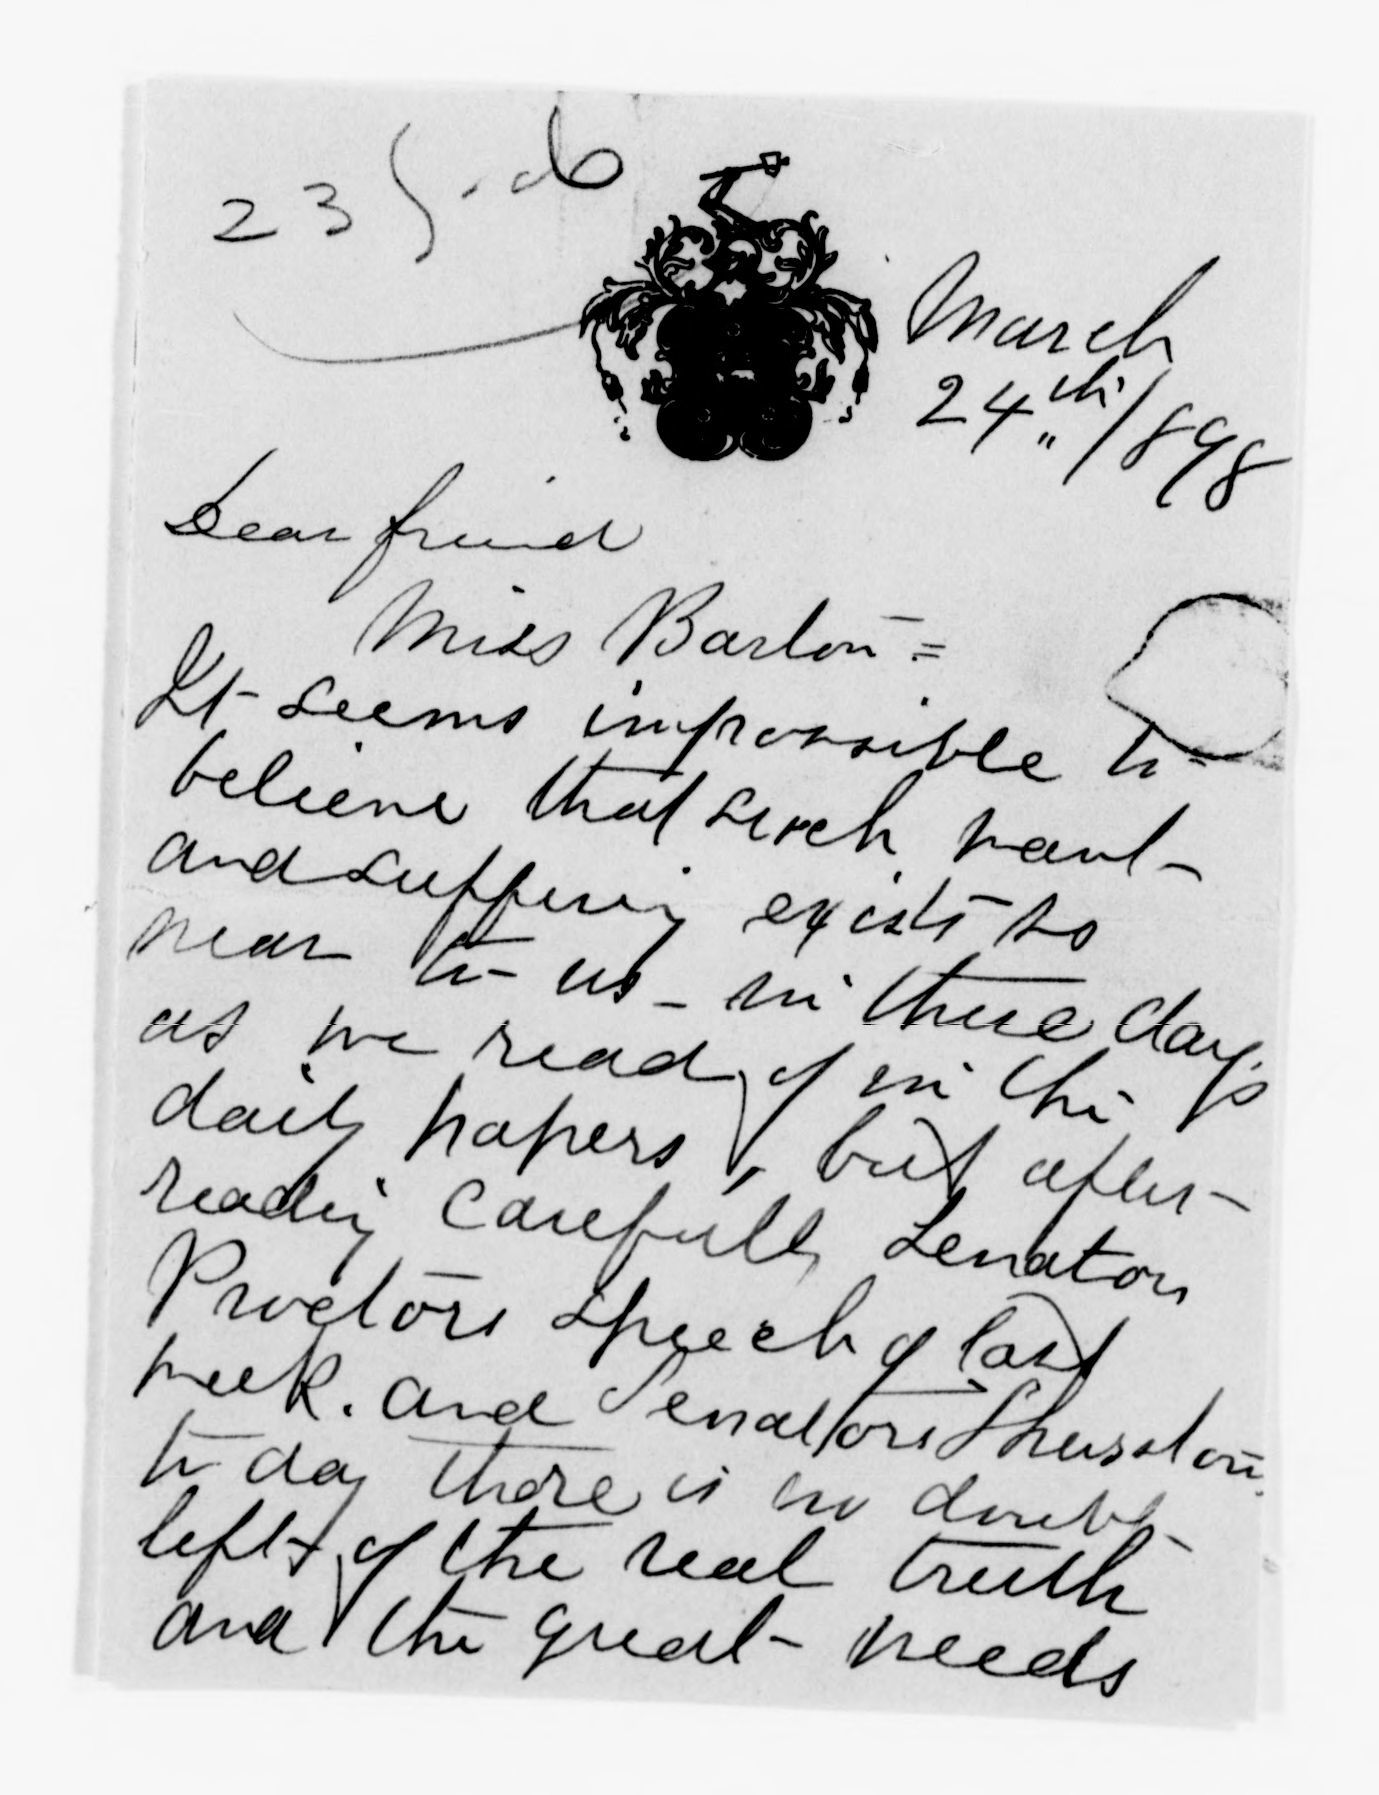 23
March
24th /898
Dear friend
Miss Barton =
It seems impossible to
believe that such want
and suffering exists so
near to us - in these days
as we read of in the
daily papers, but after
reading carefully Senator
Proctors speech of last
week. and Senators Thurston
to day there is no doubt
left of the real truth
and the great needs